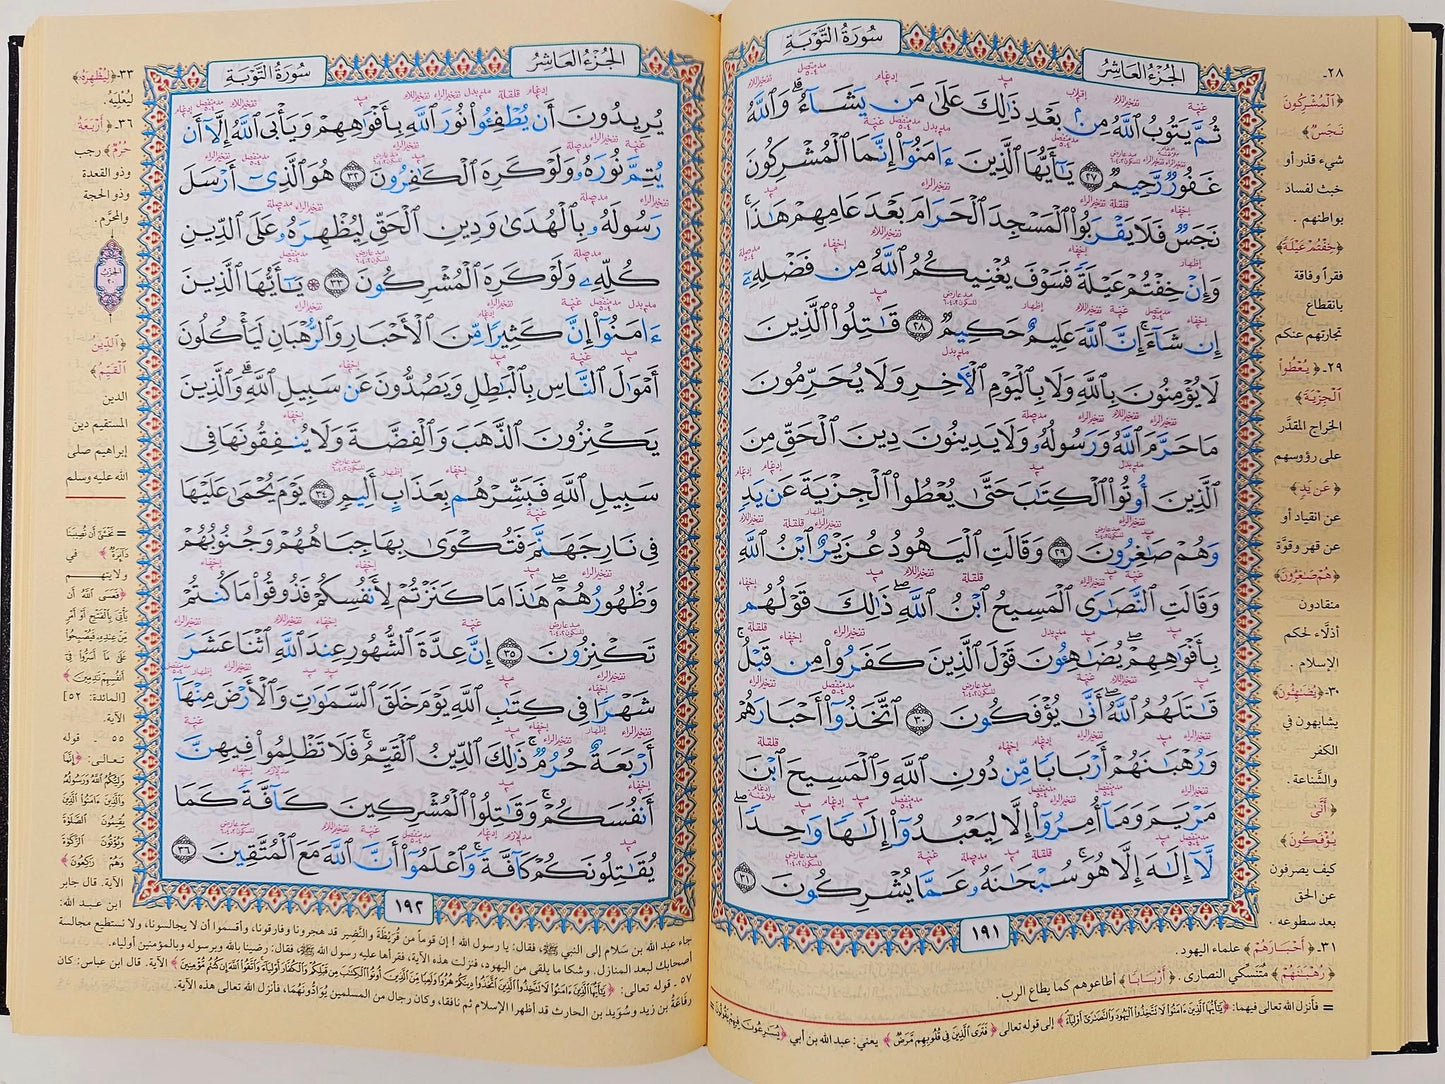 سُورَةُ التَّوْبَةِ
الجُزْءُ العَاشِرُ
ثُمَّ يَتُوبُ ٱللَّهُ مِنۢ بَعْدِ ذَٰلِكَ عَلَىٰ مَن يَشَآءُ ۗ وَٱللَّهُ
غَفُورٌ رَّحِيمٌ ٢٧ يَـٰٓأَيُّهَا ٱلَّذِينَ ءَامَنُوٓا۟ إِنَّمَا ٱلْمُشْرِكُونَ
نَجَسٌ فَلَا يَقْرَبُوا۟ ٱلْمَسْجِدَ ٱلْحَرَامَ بَعْدَ عَامِهِمْ هَـٰذَا ۚ
وَإِنْ خِفْتُمْ عَيْلَةً فَسَوْفَ يُغْنِيكُمُ ٱللَّهُ مِن فَضْلِهِۦٓ
إِن شَآءَ ۚ إِنَّ ٱللَّهَ عَلِيمٌ حَكِيمٌ ٢٨ قَـٰتِلُوا۟ ٱلَّذِينَ
لَا يُؤْمِنُونَ بِٱللَّهِ وَلَا بِٱلْيَوْمِ ٱلْـَٔاخِرِ وَلَا يُحَرِّمُونَ
مَا حَرَّمَ ٱللَّهُ وَرَسُولُهُۥ وَلَا يَدِينُونَ دِينَ ٱلْحَقِّ مِنَ
ٱلَّذِينَ أُوتُوا۟ ٱلْكِتَـٰبَ حَتَّىٰ يُعْطُوا۟ ٱلْجِزْيَةَ عَن يَدٍ
وَهُمْ صَـٰغِرُونَ ٢٩ وَقَالَتِ ٱلْيَهُودُ عُزَيْرٌ ٱبْنُ ٱللَّهِ
وَقَالَتِ ٱلنَّصَـٰرَى ٱلْمَسِيحُ ٱبْنُ ٱللَّهِ ۖ ذَٰلِكَ قَوْلُهُم
بِأَفْوَٰهِهِمْ ۖ يُضَـٰهِـُٔونَ قَوْلَ ٱلَّذِينَ كَفَرُوا۟ مِن قَبْلُ ۚ
قَـٰتَلَهُمُ ٱللَّهُ ۚ أَنَّىٰ يُؤْفَكُونَ ٣٠ ٱتَّخَذُوٓا۟ أَحْبَارَهُمْ
وَرُهْبَـٰنَهُمْ أَرْبَابًا مِّن دُونِ ٱللَّهِ وَٱلْمَسِيحَ ٱبْنَ
مَرْيَمَ وَمَآ أُمِرُوٓا۟ إِلَّا لِيَعْبُدُوٓا۟ إِلَـٰهًا وَٰحِدًا ۖ
لَّآ إِلَـٰهَ إِلَّا هُوَ ۚ سُبْحَـٰنَهُۥ عَمَّا يُشْرِكُونَ ٣١
١٩١
٢٨ـ
﴿ٱلْمُشْرِكُونَ
نَجَسٌ﴾
شيء قذر أو
خبث لفساد
بواطنهم .
﴿خِفْتُمْ عَيْلَةً﴾
فقراً وفاقة
بانقطاع
تجارتهم عنكم
٢٩ـ ﴿يُعْطُوا۟
ٱلْجِزْيَةَ﴾
الخراج المقدَّر
على رؤوسهم
﴿عَن يَدٍ﴾
عن انقياد أو
عن قهر وقوَّة
﴿هُمْ صَـٰغِرُونَ﴾
منقادون
أذلَّاء لحكم
الإسلام .
٣٠ـ ﴿يُضَـٰهِـُٔونَ﴾
يشابهون في
الكفر
والشَّناعة .
﴿أَنَّىٰ
يُؤْفَكُونَ﴾
كيف يصرفون
عن الحق
بعد سطوعه .
٣١ـ ﴿أَحْبَارَهُمْ﴾ علماء اليهود .
﴿رُهْبَـٰنَهُمْ﴾ مُتَنَسِّكي النصارى . ﴿أَرْبَابًا﴾ أطاعوهم كما يطاع الرب .
= فأنزل الله تعالى فيهما: ﴿يَـٰٓأَيُّهَا ٱلَّذِينَ ءَامَنُوا۟ لَا تَتَّخِذُوا۟ ٱلْيَهُودَ وَٱلنَّصَـٰرَىٰٓ أَوْلِيَآءَ﴾ إلى قوله تعالى ﴿فَتَرَى ٱلَّذِينَ فِى قُلُوبِهِم مَّرَضٌ﴾ يعني: عبد الله بن أبي ﴿يُسَـٰرِعُونَ فِيهِمْ يَقُولُونَ =
الجُزْءُ العَاشِرُ
سُورَةُ التَّوْبَةِ
يُرِيدُونَ أَن يُطْفِـُٔوا۟ نُورَ ٱللَّهِ بِأَفْوَٰهِهِمْ وَيَأْبَى ٱللَّهُ إِلَّآ أَن
يُتِمَّ نُورَهُۥ وَلَوْ كَرِهَ ٱلْكَـٰفِرُونَ ٣٢ هُوَ ٱلَّذِىٓ أَرْسَلَ
رَسُولَهُۥ بِٱلْهُدَىٰ وَدِينِ ٱلْحَقِّ لِيُظْهِرَهُۥ عَلَى ٱلدِّينِ
كُلِّهِۦ وَلَوْ كَرِهَ ٱلْمُشْرِكُونَ ٣٣ ۞ يَـٰٓأَيُّهَا ٱلَّذِينَ
ءَامَنُوٓا۟ إِنَّ كَثِيرًا مِّنَ ٱلْأَحْبَارِ وَٱلرُّهْبَانِ لَيَأْكُلُونَ
أَمْوَٰلَ ٱلنَّاسِ بِٱلْبَـٰطِلِ وَيَصُدُّونَ عَن سَبِيلِ ٱللَّهِ ۗ وَٱلَّذِينَ
يَكْنِزُونَ ٱلذَّهَبَ وَٱلْفِضَّةَ وَلَا يُنفِقُونَهَا فِى
سَبِيلِ ٱللَّهِ فَبَشِّرْهُم بِعَذَابٍ أَلِيمٍ ٣٤ يَوْمَ يُحْمَىٰ عَلَيْهَا
فِى نَارِ جَهَنَّمَ فَتُكْوَىٰ بِهَا جِبَاهُهُمْ وَجُنُوبُهُمْ
وَظُهُورُهُمْ ۖ هَـٰذَا مَا كَنَزْتُمْ لِأَنفُسِكُمْ فَذُوقُوا۟ مَا كُنتُمْ
تَكْنِزُونَ ٣٥ إِنَّ عِدَّةَ ٱلشُّهُورِ عِندَ ٱللَّهِ ٱثْنَا عَشَرَ
شَهْرًا فِى كِتَـٰبِ ٱللَّهِ يَوْمَ خَلَقَ ٱلسَّمَـٰوَٰتِ وَٱلْأَرْضَ مِنْهَآ
أَرْبَعَةٌ حُرُمٌ ۚ ذَٰلِكَ ٱلدِّينُ ٱلْقَيِّمُ ۚ فَلَا تَظْلِمُوا۟ فِيهِنَّ
أَنفُسَكُمْ ۚ وَقَـٰتِلُوا۟ ٱلْمُشْرِكِينَ كَآفَّةً كَمَا
يُقَـٰتِلُونَكُمْ كَآفَّةً ۚ وَٱعْلَمُوٓا۟ أَنَّ ٱللَّهَ مَعَ ٱلْمُتَّقِينَ ٣٦
١٩٢
٣٣ـ ﴿لِيُظْهِرَهُۥ﴾
ليُعْلِيَه .
٣٦ـ ﴿أَرْبَعَةٌ
حُرُمٌ﴾ رجب
وذو القعدة
وذو الحجة
والمحرَّم .
الحزب
٢٠
﴿ٱلدِّينُ
ٱلْقَيِّمُ﴾
الدين
المستقيم دين
إبراهيم صلى
الله عليه وسلم
= نَخْشَىٰٓ أَن تُصِيبَنَا
دَآئِرَةٌ﴾ في
ولايتهم
﴿فَعَسَى ٱللَّهُ أَن
يَأْتِىَ بِٱلْفَتْحِ أَوْ أَمْرٍ
مِّنْ عِندِهِۦ فَيُصْبِحُوا۟
عَلَىٰ مَآ أَسَرُّوا۟ فِىٓ
أَنفُسِهِمْ نَـٰدِمِينَ﴾
[المائدة: ٥٢]
الآية.
٥٥ ـ قوله
تعالى: ﴿إِنَّمَا
وَلِيُّكُمُ ٱللَّهُ وَرَسُولُهُۥ
وَٱلَّذِينَ ءَامَنُوا۟ ٱلَّذِينَ
يُقِيمُونَ ٱلصَّلَوٰةَ
وَيُؤْتُونَ ٱلزَّكَوٰةَ
وَهُمْ رَٰكِعُونَ﴾
الآية. قال جابر
ابن عبد الله:
جاء عبد الله بن سَلام إلى النبي ﷺ، فقال: يا رسول الله ! إن قوماً من قُرَيْظَة والنَّضِير قد هجرونا وفارقونا، وأقسموا أن لا يجالسونا، ولا نستطيع مجالسة
أصحابك لبعد المنازل. وشكا ما يلقى من اليهود، فنزلت هذه الآية، فقرأها عليه رسول الله ﷺ، فقال: رضينا بالله وبرسوله وبالمؤمنين أولياء.
٥٧ ـ قوله تعالى: ﴿يَـٰٓأَيُّهَا ٱلَّذِينَ ءَامَنُوا۟ لَا تَتَّخِذُوا۟ ٱلَّذِينَ ٱتَّخَذُوا۟ دِينَكُمْ هُزُوًا وَلَعِبًا مِّنَ ٱلَّذِينَ أُوتُوا۟ ٱلْكِتَـٰبَ مِن قَبْلِكُمْ وَٱلْكُفَّارَ أَوْلِيَآءَ ۚ وَٱتَّقُوا۟ ٱللَّهَ إِن كُنتُم مُّؤْمِنِينَ﴾ الآية. قال ابن عباس: كان
رفاعَةُ بن زيد وسُوَيد بن الحارث قد أظهرا الإسلام ثم نافقا، وكان رجال من المسلمين يُوَادُّونَهُمَا، فأنزل الله تعالى هذه الآية.